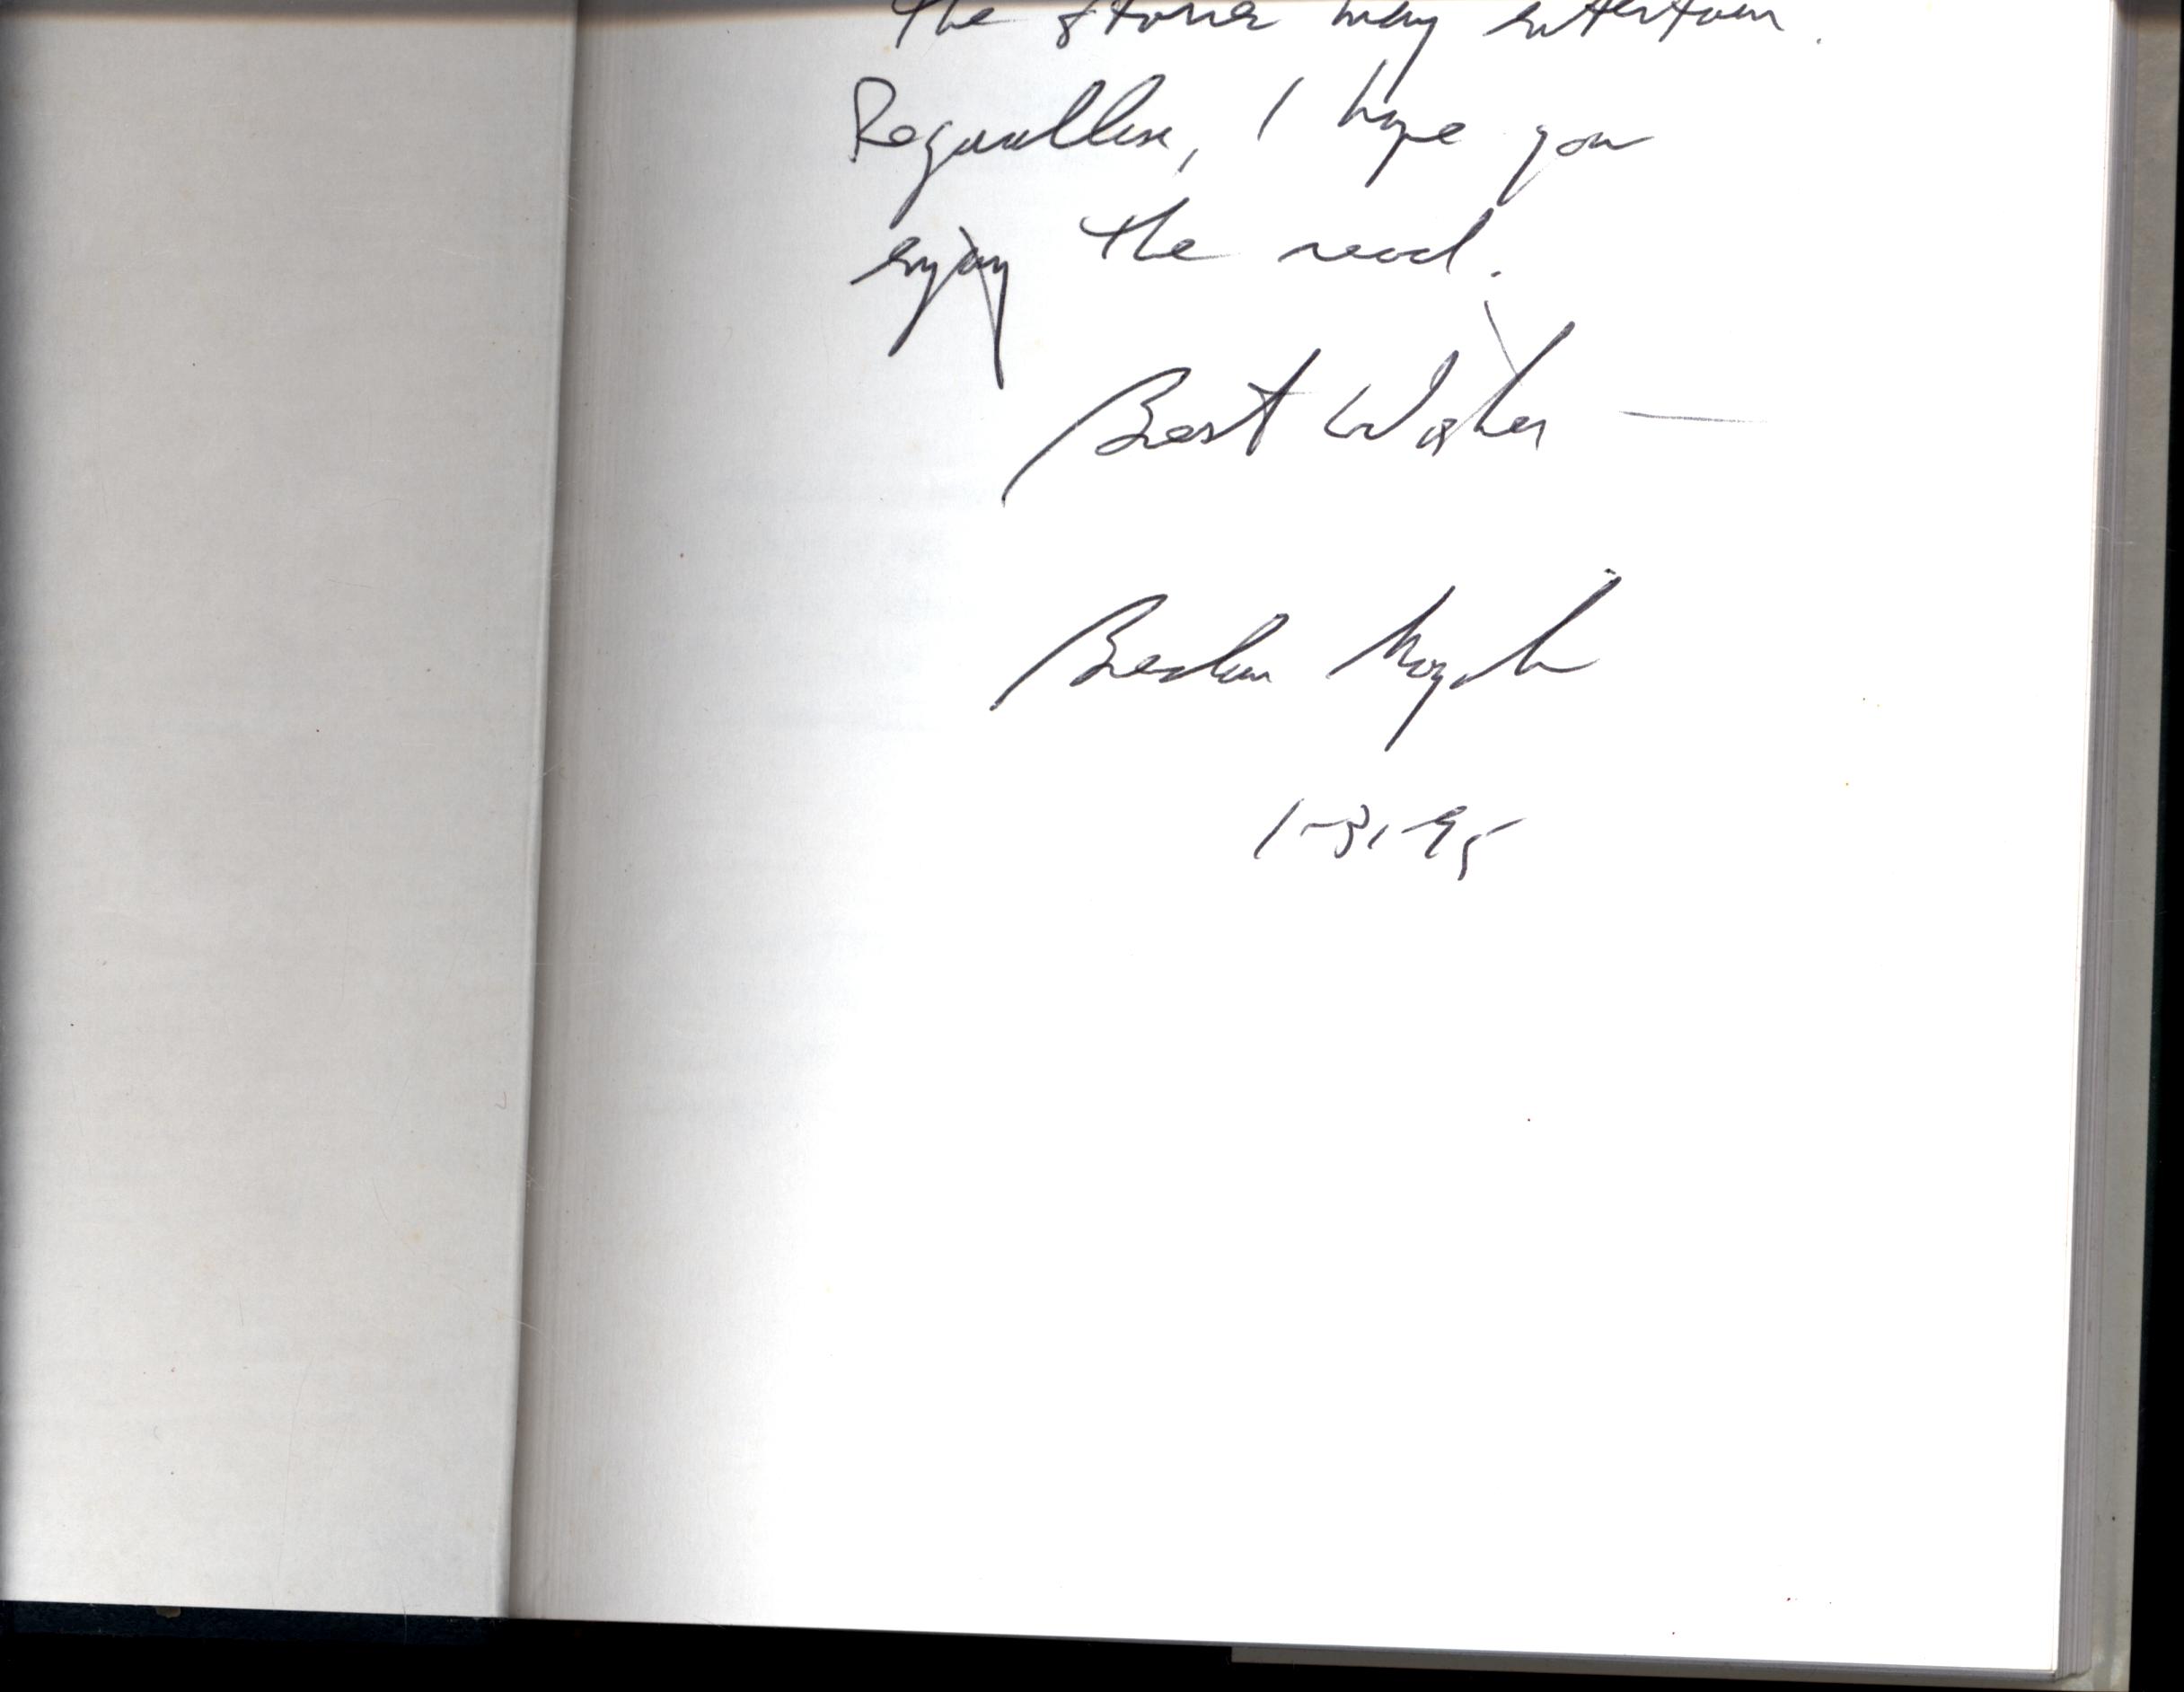 The stories may entertain.
Regardless, I hope you
enjoy the read.
Best Wishes —
1-31-95